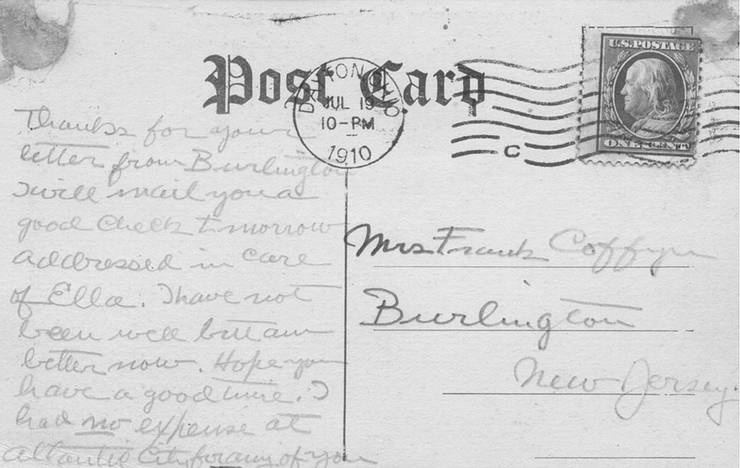 Post Card
DAYTON, OHIO
JUL 19
10-PM
1910
C
U.S. POSTAGE
ONE CENT
Thanks for your
letter from Burlington
I will mail you a
good check tomorrow
addressed in care
of Ella. I have not
been well but am
better now. Hope you
have a good time. I
had no expense at
Atlantic City for any of you
Mrs Frank Coffyn
Burlington
New Jersey.